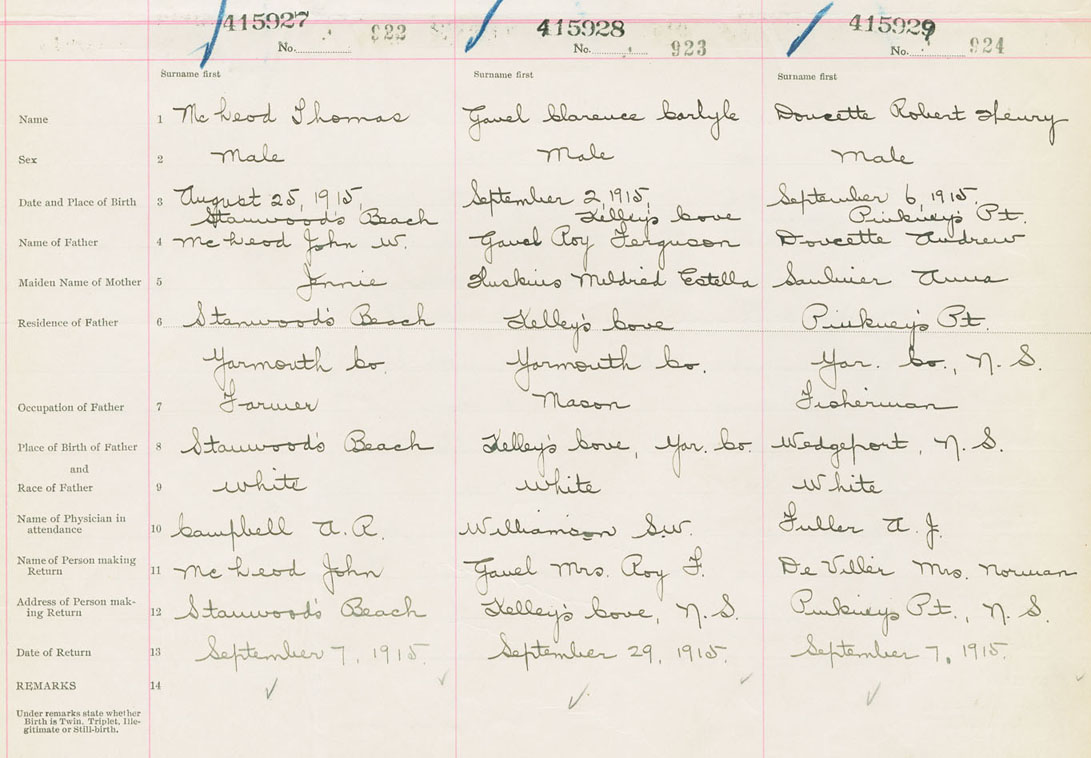 415927 415928 415929
No. 922 No. 923 No. 924
Surname first Surname first Surname first
Name 1 McLeod Thomas Gavel Clarence Carlyle Doucette Robert Henry
Sex 2 Male Male Male
Date and Place of Birth 3 August 25, 1915, September 2, 1915, September 6, 1915.
Stanwood's Beach Kelley's Cove Pinkney's Pt.
Name of Father 4 McLeod John W. Gavel Roy Ferguson Doucette Andrew
Maiden Name of Mother 5 Jennie Huskins Mildred Estella Saulnier Anna
Residence of Father 6 Stanwood's Beach Kelley's Cove Pinkney's Pt.
Yarmouth Co. Yarmouth Co. Yar. Co., N. S.
Occupation of Father 7 Farmer Mason Fisherman
Place of Birth of Father 8 Stanwood's Beach Kelley's Cove, Yar. Co. Wedgeport, N. S.
and
Race of Father 9 White White White
Name of Physician in
attendance 10 Campbell A. R. Williamson S.W. Fuller A. J.
Name of Person making
Return 11 McLeod John Gavel Mrs. Roy F. De Viller Mrs. Norman
Address of Person mak-
ing Return 12 Stanwood's Beach Kelley's Cove, N. S. Pinkney's Pt., N. S.
Date of Return 13 September 7, 1915. September 29, 1915. September 7, 1915.
REMARKS 14
Under remarks state whether
Birth is Twin, Triplet, Ille-
gitimate or Still-birth.